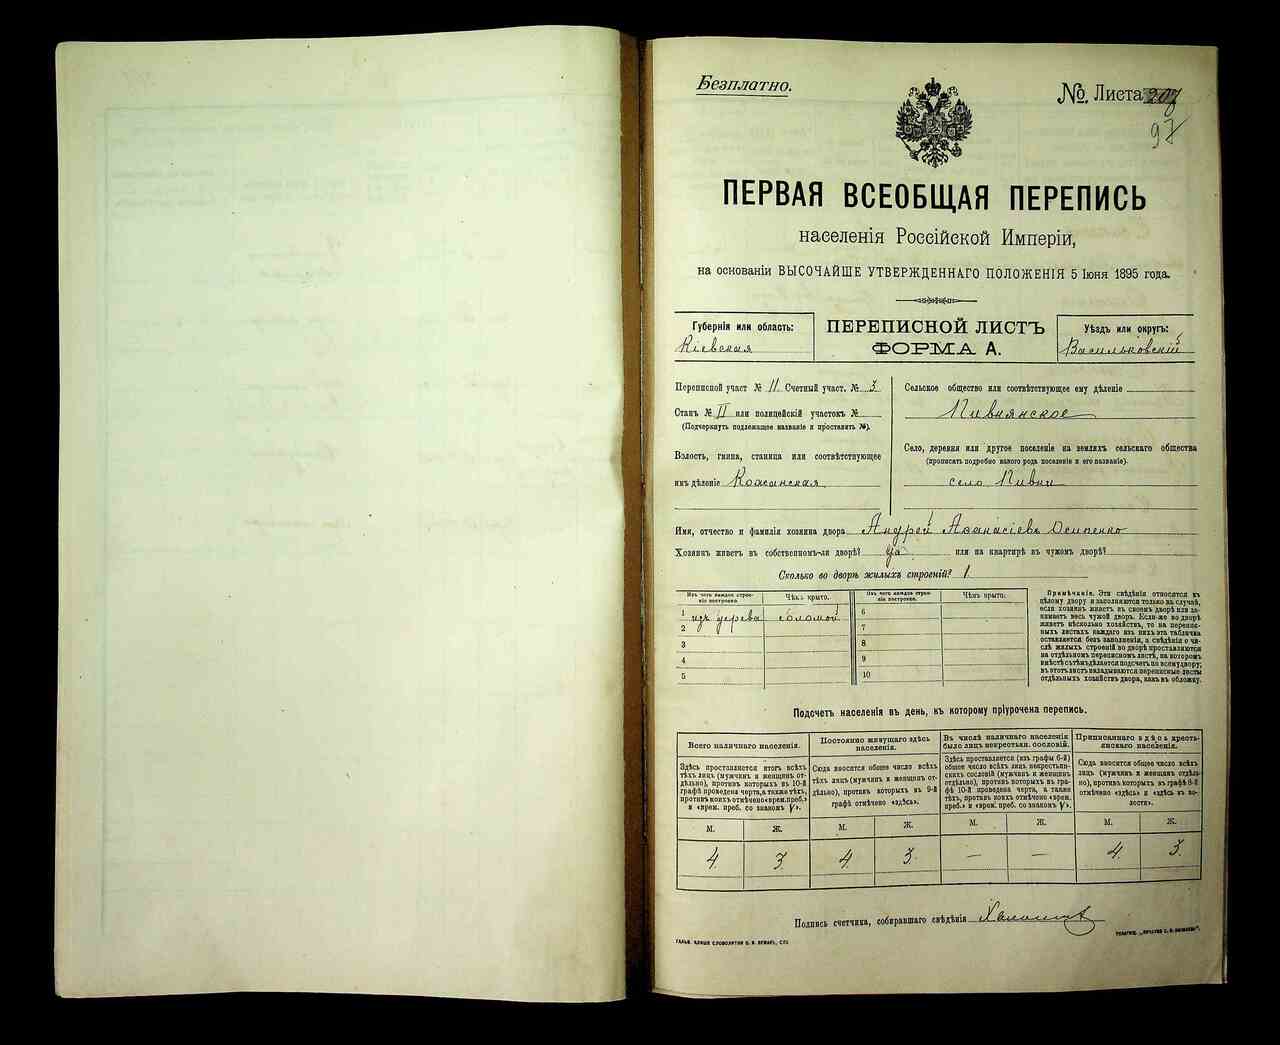 Безплатно.
№. Листа 207
97
ПЕРВАЯ ВСЕОБЩАЯ ПЕРЕПИСЬ
населенія Россійской Имперіи,
на основаніи ВЫСОЧАЙШЕ УТВЕРЖДЕННАГО ПОЛОЖЕНІЯ 5 Іюня 1895 года.
Губернія или область:
Кіевская
ПЕРЕПИСНОЙ ЛИСТЪ
ФОРМА А.
Уѣздъ или округъ:
Васильковскій
Переписной участ № II Счетный участ. № 3
Станъ № II или полицейскій участокъ №
(Подчеркнуть подлежащее названіе и проставить №).
Волость, гмина, станица или соотвѣтствующее
имъ дѣленіе Кожанская
Сельское общество или соотвѣтствующее ему дѣленіе
Пивнянское
Село, деревня или другое поселеніе на земляхъ сельскаго общества
(прописать подробно какого рода поселеніе и его названіе).
село Пивни
Имя, отчество и фамилія хозяина двора Андрей Аѳанасіевъ Осипенко
Хозяинъ живетъ въ собственномъ-ли дворѣ? да или на квартирѣ въ чужомъ дворѣ?
Сколько во дворѣ жилыхъ строеній? 1
Изъ чего каждое строеніе построено.
Чѣмъ крыто.
1 изъ дерева соломой
2
3
4
5
Изъ чего каждое строеніе построено.
Чѣмъ крыто.
6
7
8
9
10
Примѣчаніе. Эти свѣдѣнія относятся къ
цѣлому двору и заполняются только въ случаѣ,
если хозяинъ живетъ въ своемъ дворѣ или занимаетъ
весь чужой дворъ. Если-же во дворѣ
живетъ нѣсколько хозяйствъ, то на переписныхъ
листахъ каждаго изъ нихъ эта табличка
оставляется безъ заполненія, а свѣдѣнія о числѣ
жилыхъ строеній во дворѣ проставляются
на отдѣльномъ переписномъ листѣ, на которомъ
вмѣстѣ съ тѣмъ дѣлается подсчетъ по всему двору;
въ этотъ листъ вкладываются переписные листы
отдѣльныхъ хозяйствъ двора, какъ въ обложку.
Подсчетъ населенія въ день, къ которому пріурочена перепись.
Всего наличнаго населенія.
Здѣсь проставляется итогъ всѣхъ
тѣхъ лицъ (мужчинъ и женщинъ отдѣльно),
противъ которыхъ въ 10-й
графѣ проведена черта, а также тѣхъ,
противъ коихъ отмѣчено «врем. преб.»
и «врем. преб. со знакомъ V».
Постоянно живущаго здѣсь
населенія.
Сюда вносится общее число всѣхъ
тѣхъ лицъ (мужчинъ и женщинъ отдѣльно),
противъ которыхъ въ 9-й
графѣ отмѣчено «здѣсь».
Въ числѣ наличнаго населенія
было лицъ некрестьян. сословій.
Здѣсь проставляется (изъ графы 6-й)
общее число всѣхъ лицъ некрестьянскихъ
сословій (мужчинъ и женщинъ
отдѣльно), противъ которыхъ въ графѣ
10-й проведена черта, а также
тѣхъ, противъ коихъ отмѣчено «врем.
преб.» и «врем. преб. со знакомъ V».
Приписаннаго здѣсь крестьянскаго
населенія.
Сюда вносится общее число всѣхъ
лицъ (мужчинъ и женщинъ отдѣльно),
противъ которыхъ въ графѣ 8-й
отмѣчено «здѣсь» и «здѣсь въ волости».
М. Ж. М. Ж. М. Ж. М. Ж.
4. 3 4. 3. — — 4. 3.
Подпись счетчика, собиравшаго свѣдѣнія